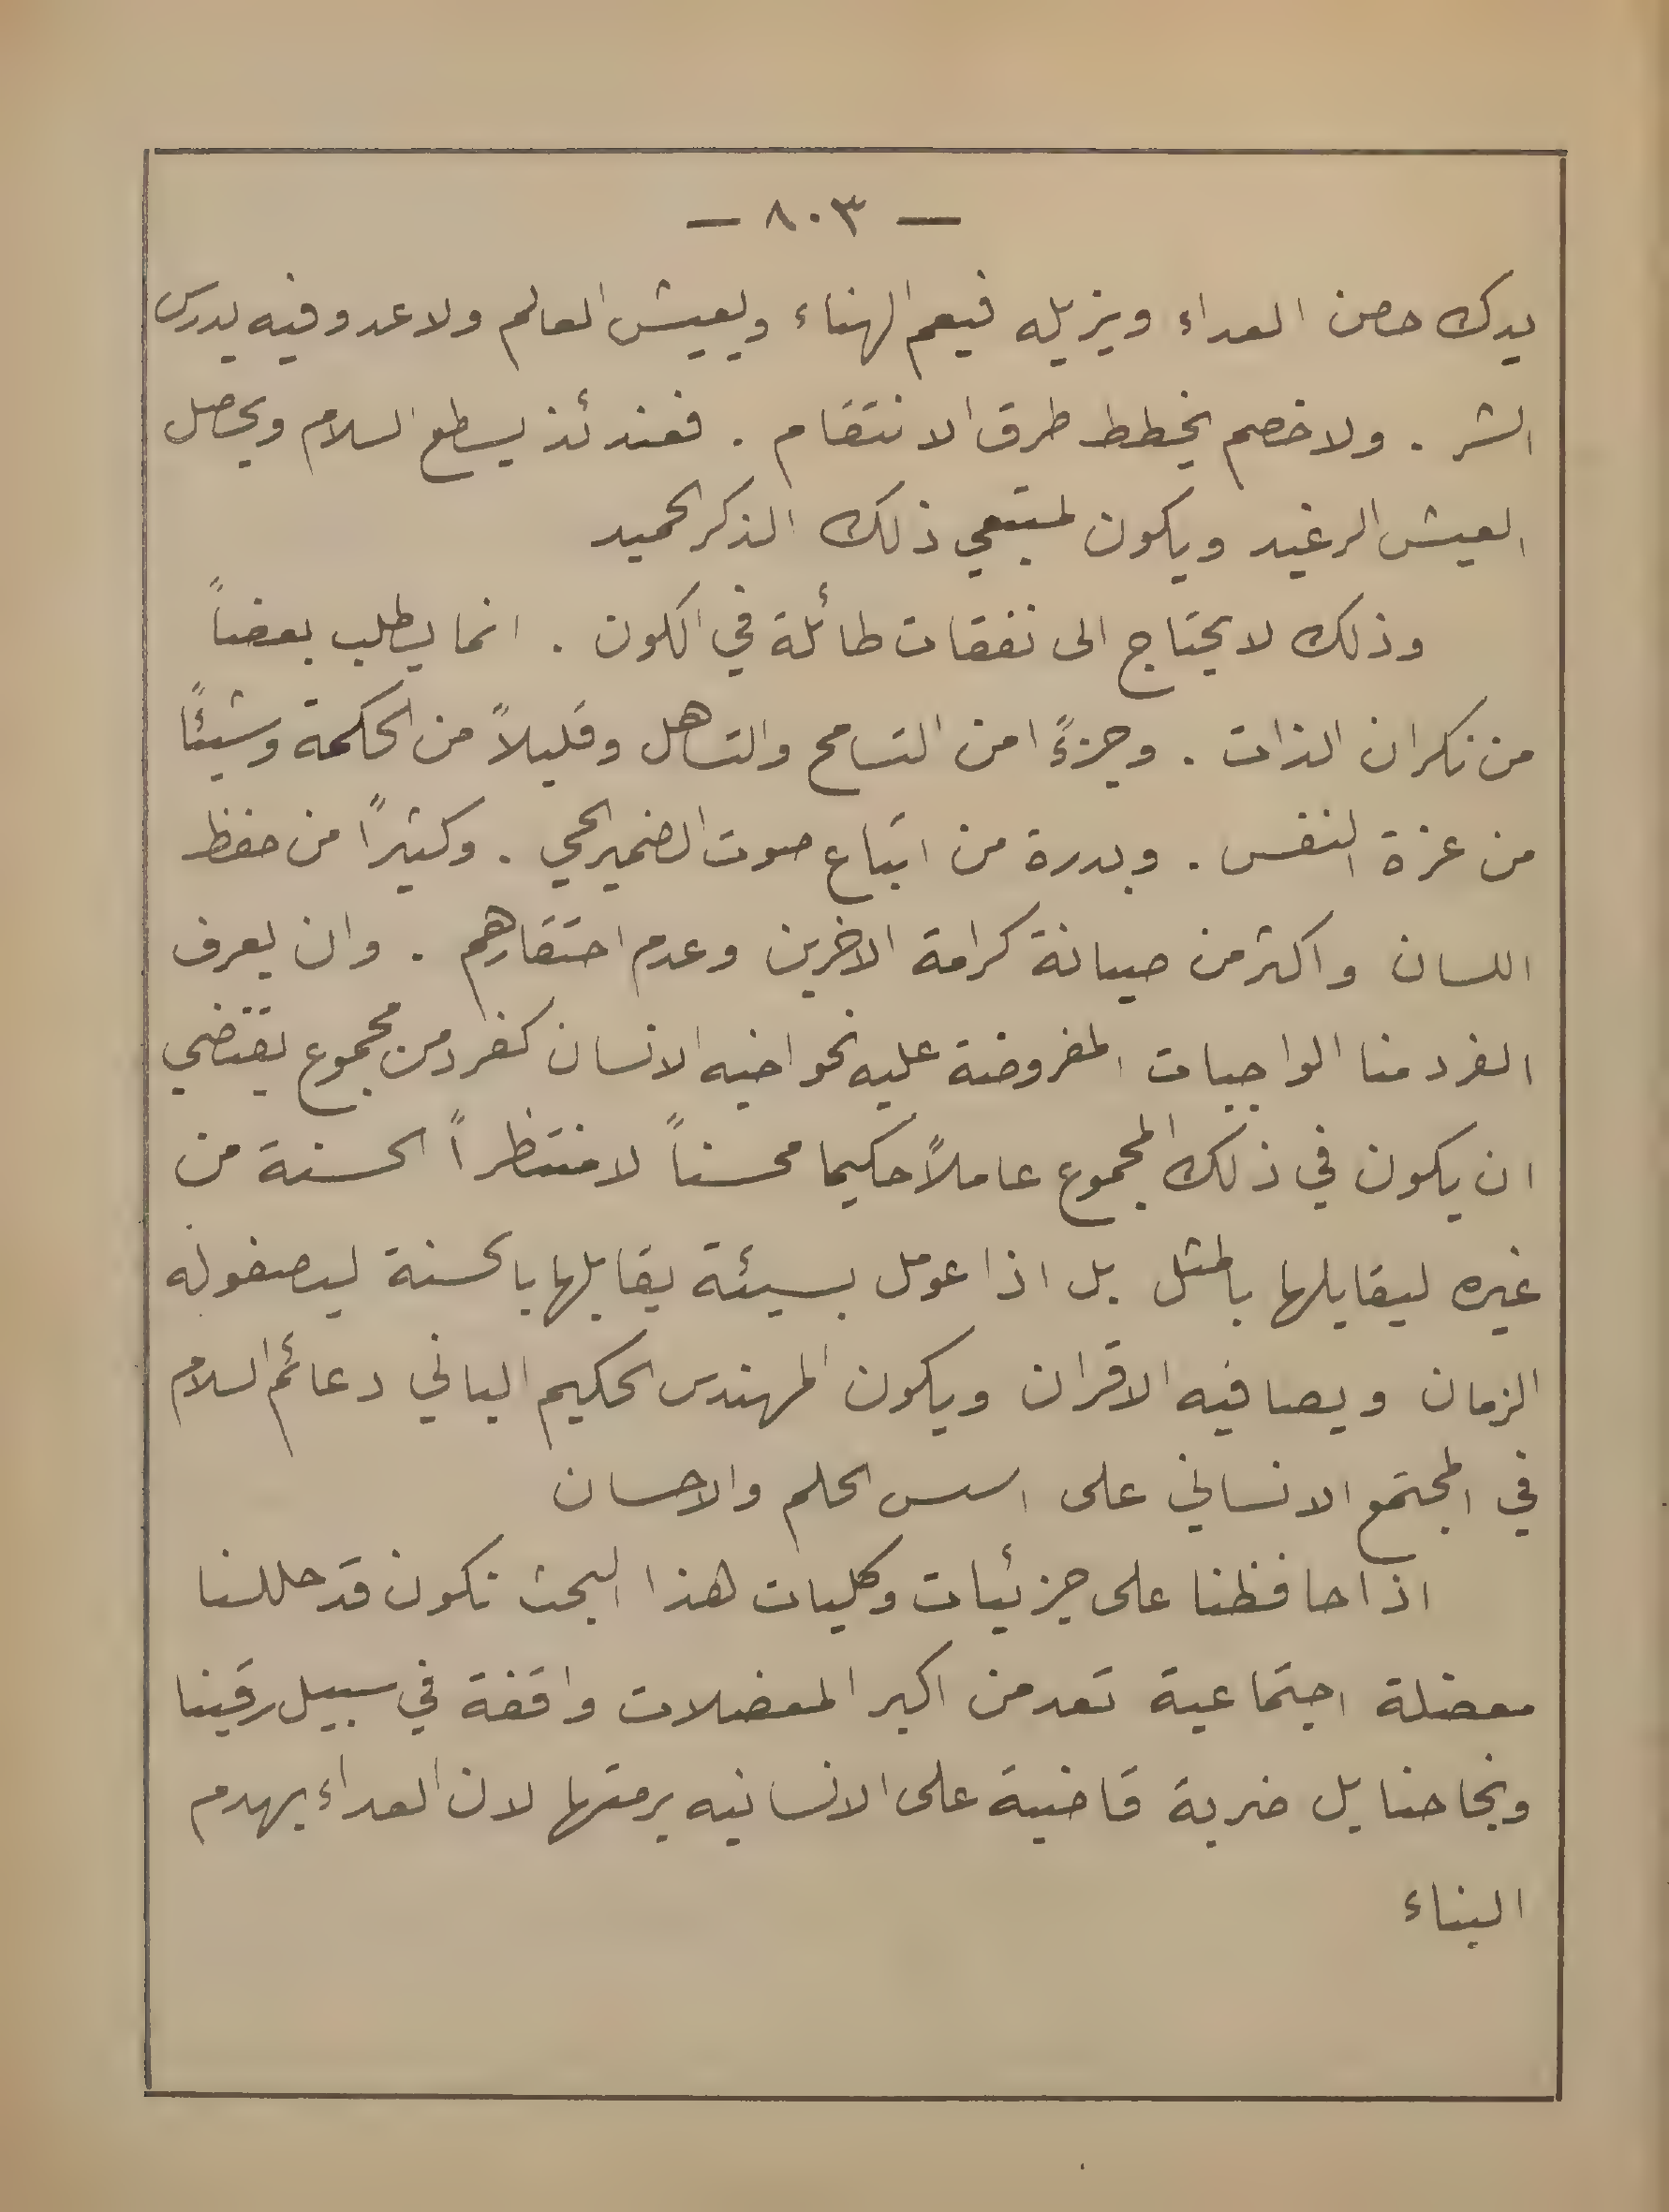 — ٨٠٣ —
يدك حصن العداء ويزيله فيعم الهناء ويعيش العالم ولا عدو فيه يدرس
الشر . ولا خصم يخطط طرق الانتقام . فعندئذ يسطع السلام ويحصل
العيش الرغيد ويكون لمتبعي ذلك الذكر الحميد
وذلك لا يحتاج الى نفقات طائلة في الكون . انما يطلب بعضاً
من نكران الذات . وجزءًا من التسامح والتساهل وقليلاً من الحكمة وشيئًا
من عزة النفس . وبدرة من اتباع صوت الضمير الحي . وكثيرًا من حفظ
اللسان واكثر من صيانة كرامة الاخرين وعدم احتقارهم . وان يعرف
الفرد منا الواجبات المفروضة عليه نحو اخيه الانسان كفرد من مجموع يقتضي
ان يكون في ذلك المجموع عاملاً حكيما محسناً لا منتظراً الحسنة من
غيره ليقابلها بالمثل بل اذا عومل بسيئة يقابلها بالحسنة ليصفو له
الزمان ويصافيه الاقران ويكون المهندس الحكيم الباني دعائم السلام
في المجتمع الانساني على اسس الحلم والاحسان
اذا حافظنا على جزئيات وكليات هذا البحث نكون قد حللنا
معضلة اجتماعية تعد من اكبر المعضلات واقفة في سبيل رقينا
ونجاحنا بل ضربة قاضية على الانسانيه برمتها لان العداء يهدم
البناء